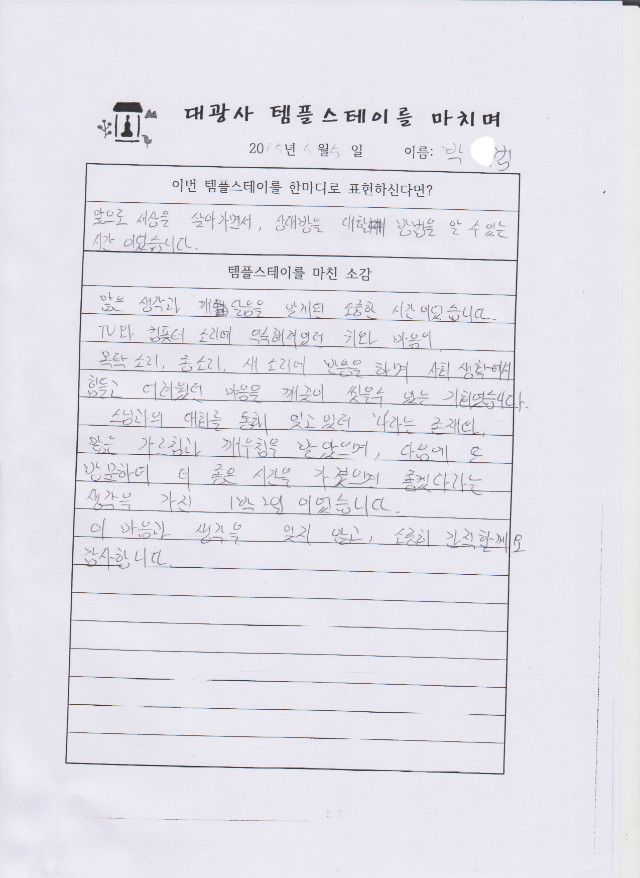 대광사 템플스테이를 마치며
2015년 월 5 일 이름: 박
이번 템플스테이를 한미디로 표현하신다면?
앞으로 세상을 살아가면서, 상대방을 대할 방법을 알 수 있는
시간 이었습니다.
템플스테이를 마친 소감
많은 생각과 깨달음을 알게된 소중한 시간 이었습니다.
TV와 컴퓨터 소리에 익숙해져있던 귀와 마음이,
목탁 소리, 종소리, 새 소리에 반응을 하며 사회 생활에서
힘들고 어려웠던 마음을 깨끗이 씻을수 있는 기회였습니다.
스님과의 대화를 통해 잊고 있던 '나'라는 존재와,
많은 가르침과 깨우침을 받았으며, 다음에 또
방문하여 더 좋은 시간을 가졌으면 좋겠다라는
생각을 가진 1박 2일 이었습니다.
이 마음과 생각을 잊지 않고, 소중히 간직할께요
감사합니다.